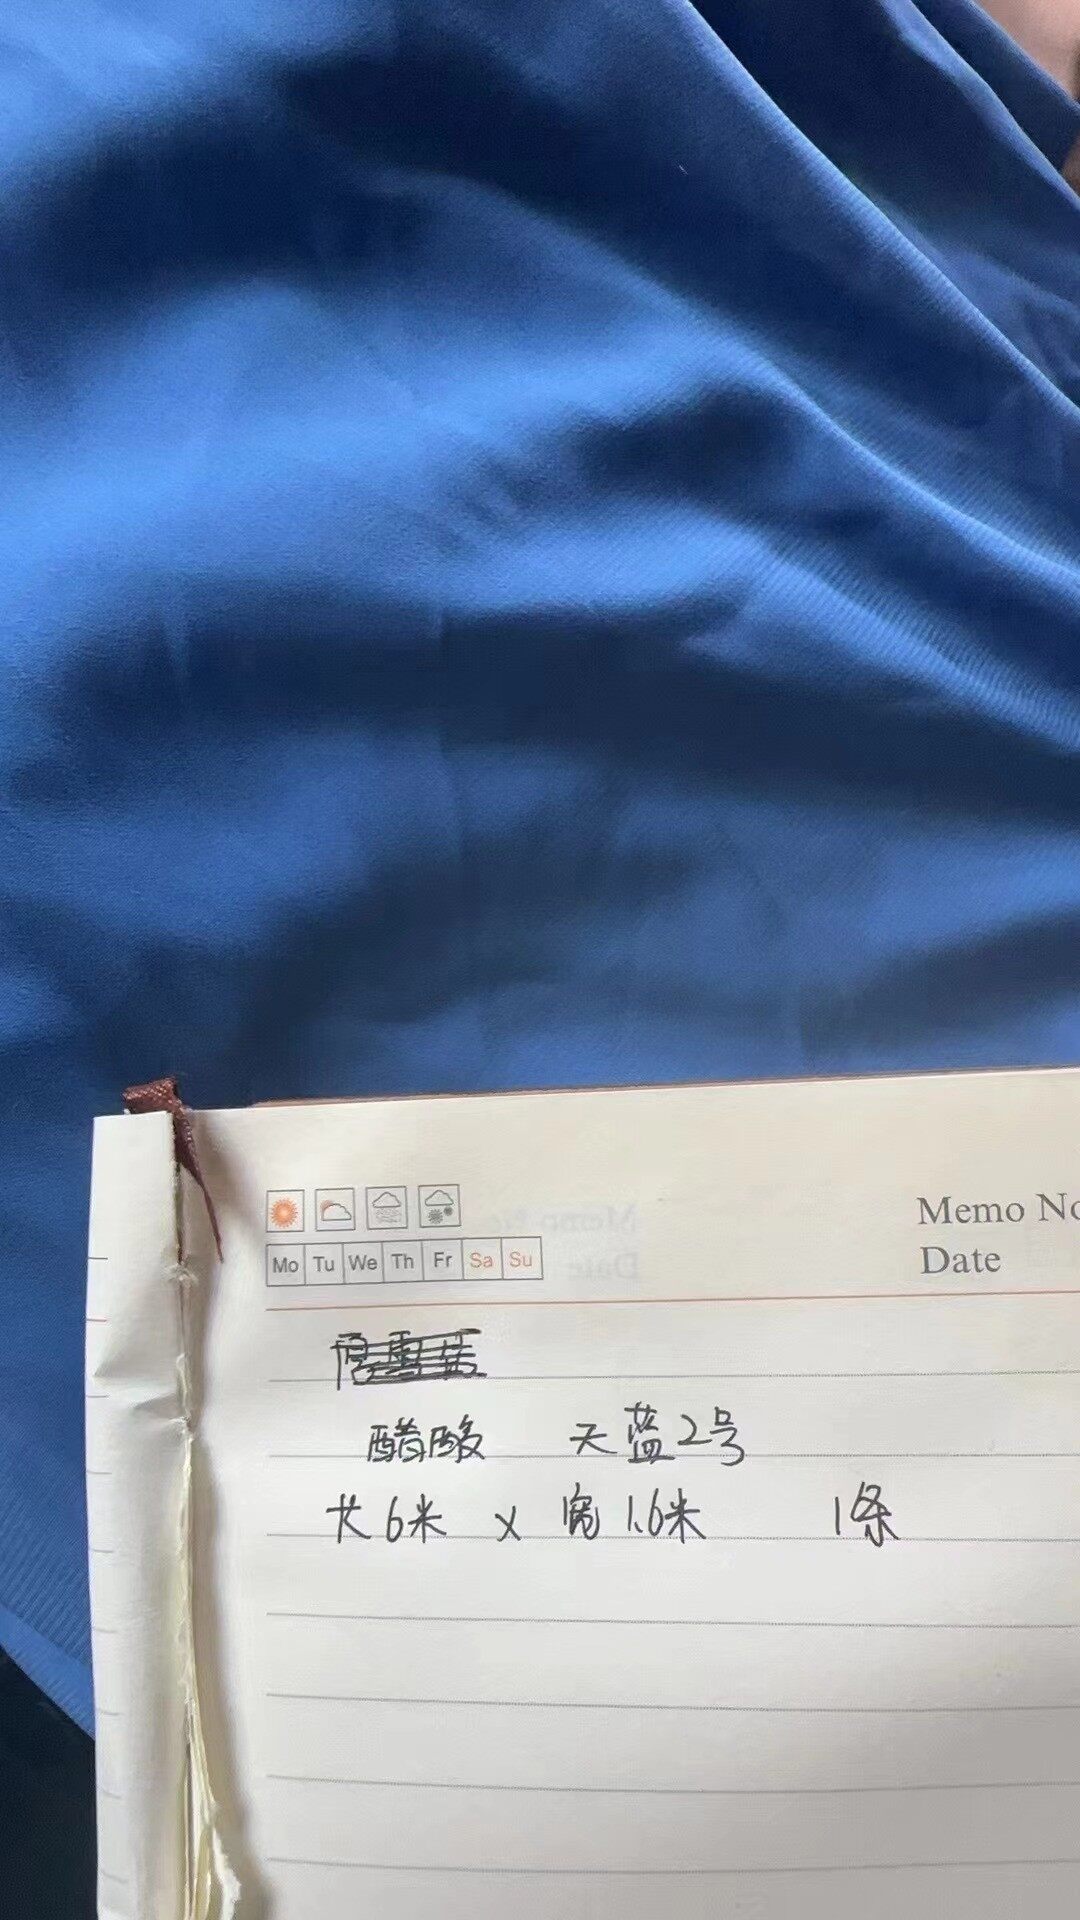 Memo No
Date
Mo Tu We Th Fr Sa Su
醋酸 天蓝2号
长6米 x 宽1.6米 1条